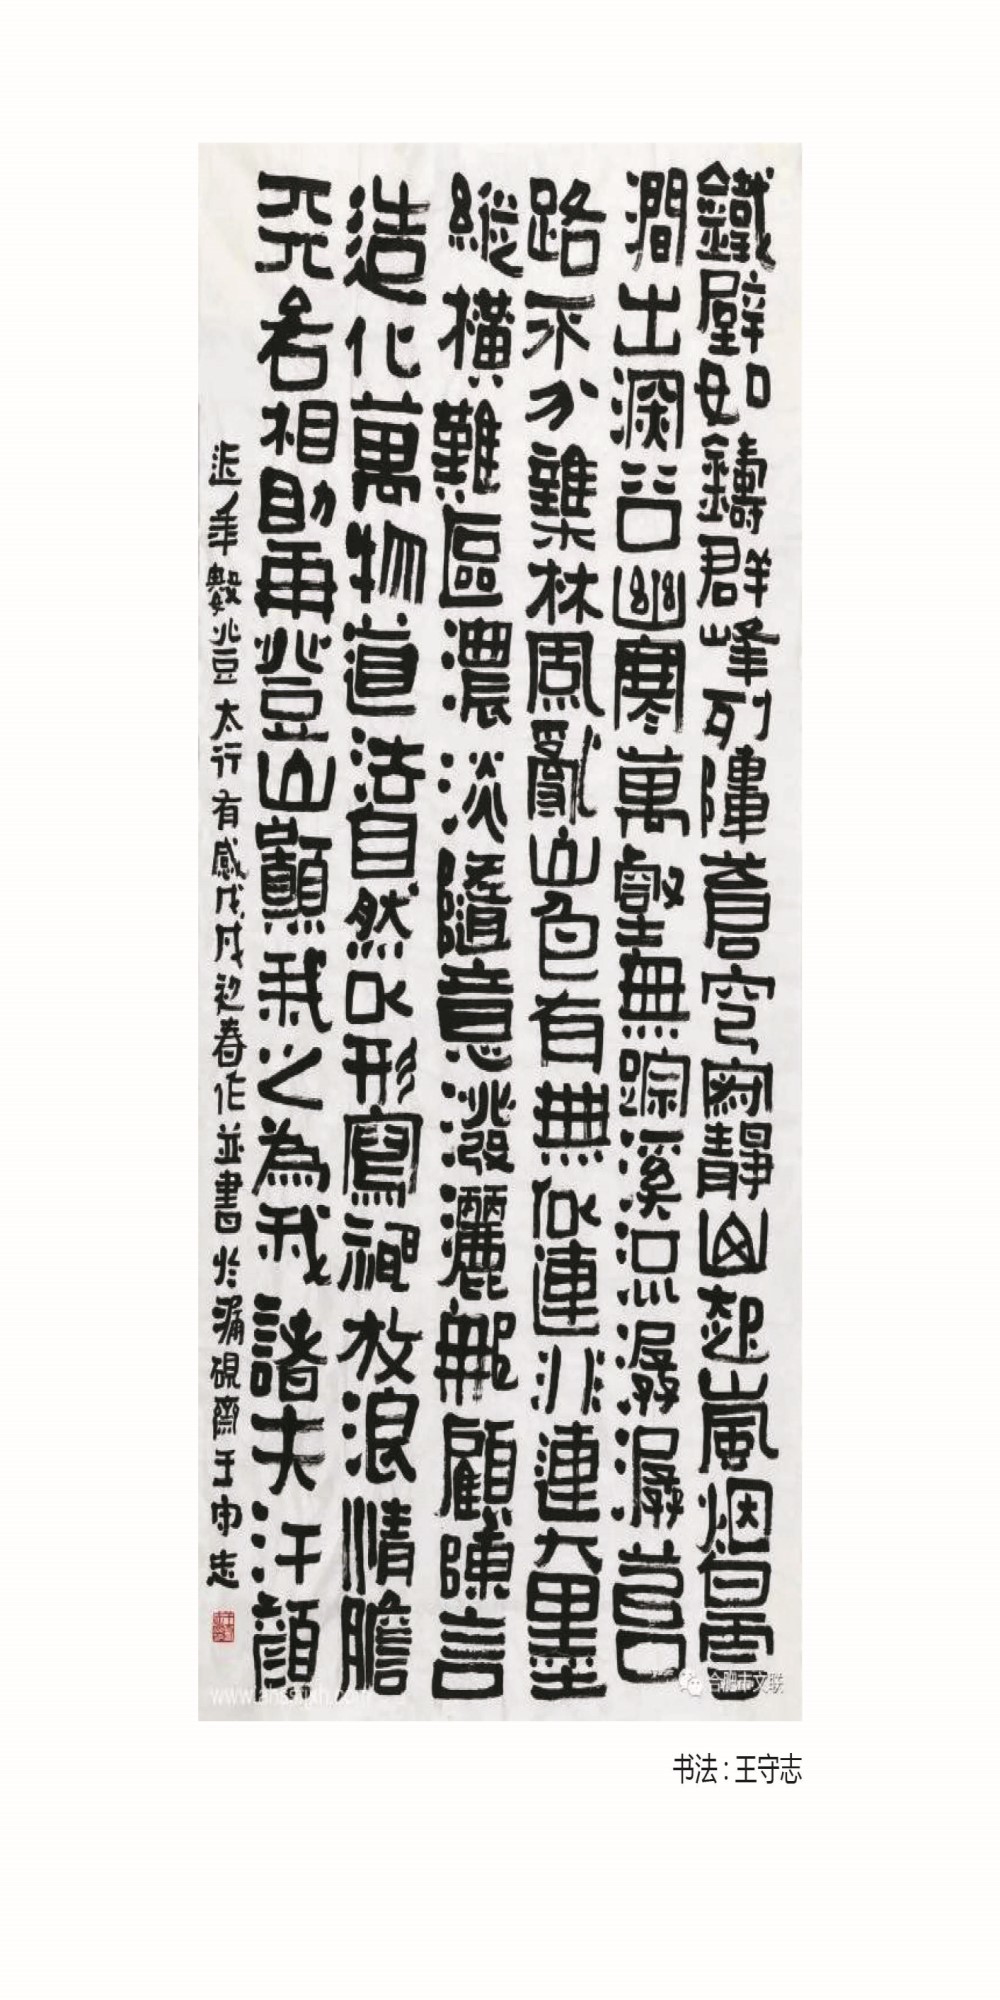 鐵壁如鑄群峰列陣蒼穹靜起嵐烟白雲
澗出深谷幽寒萬壑無踪溪潺潺
路不分雜林亂山色有無似連非連大墨
縱橫難區濃淡隨意潑灑無顧陳言
造化萬物道法自然以形寫神放浪情膽
天若相助再登山巔我之為我諸夫汗顏
近年數登太行有感戊戌初春作並書於漏硯齋王守志
合肥市文联
书法:王守志